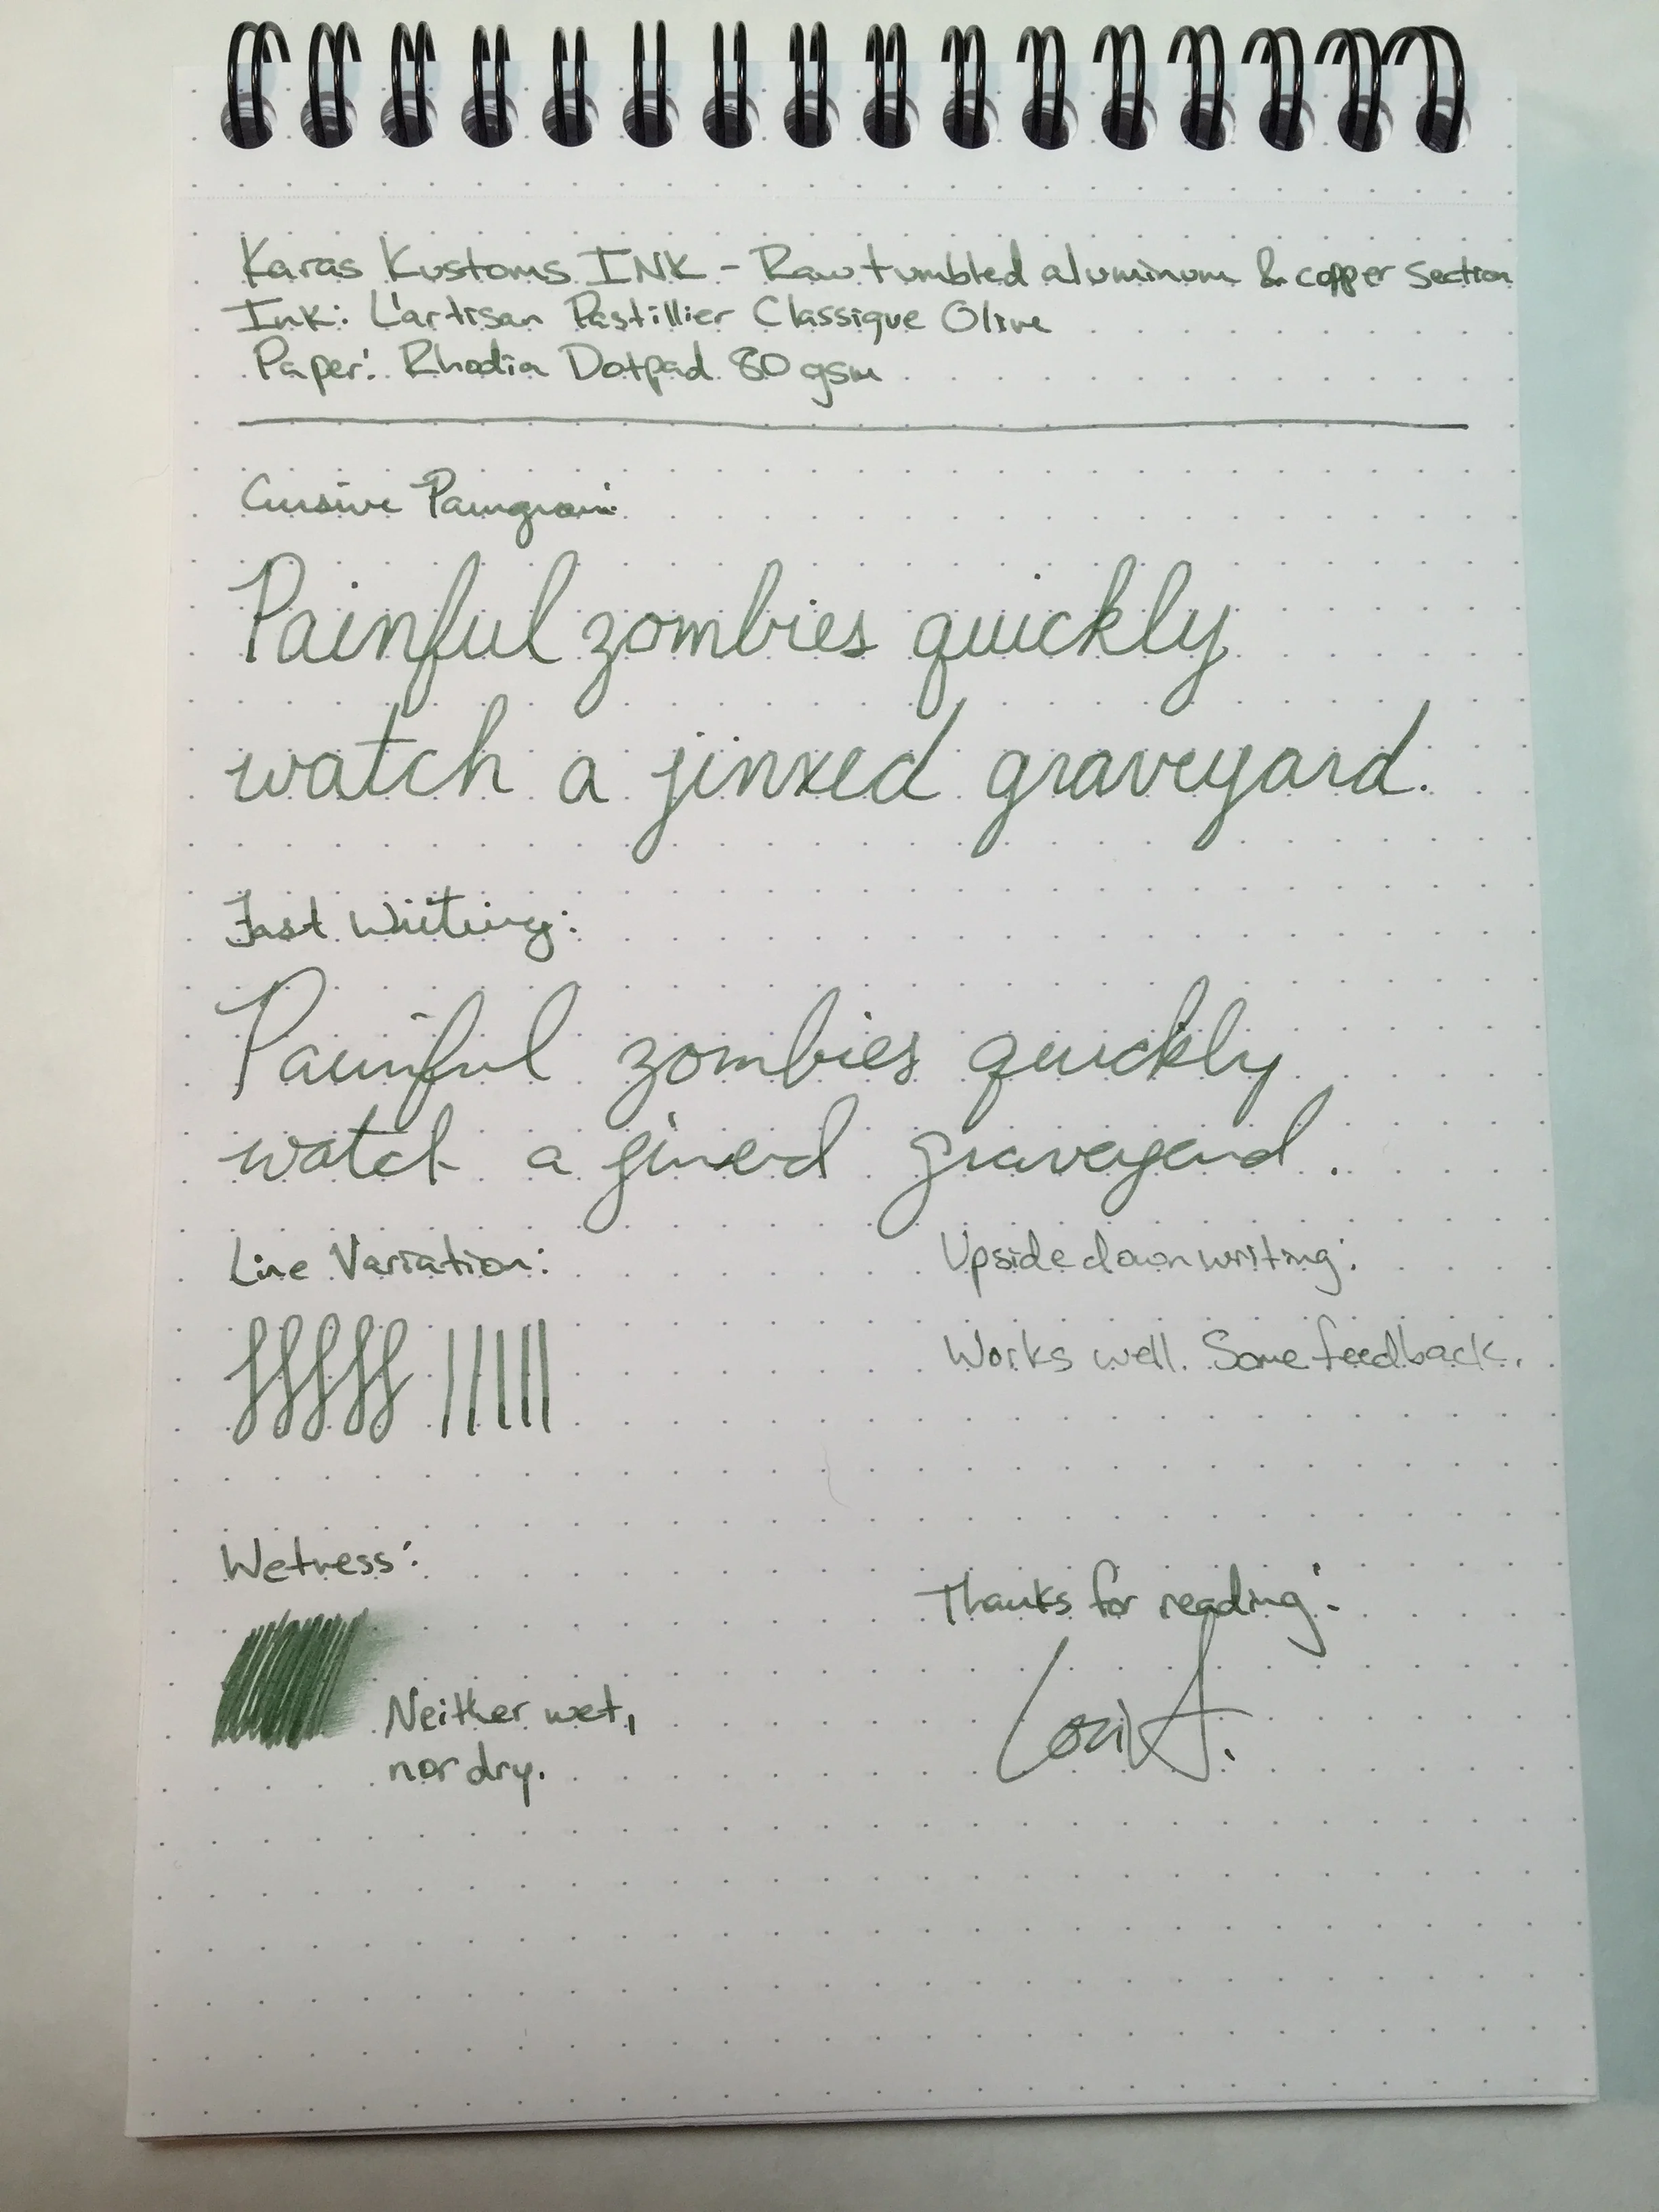 Karas Kustoms INK - Raw tumbled aluminum & copper section
Ink: L'artisan Pastillier Classique Olive
Paper: Rhodia Dotpad 80 gsm
Cursive Pangram:
Painful zombies quickly
watch a jinxed graveyard.
Fast Writing:
Painful zombies quickly
watch a jinxed graveyard.
Line Variation:
Upside down writing:
Works well. Some feedback.
Wetness:
Neither wet,
nor dry.
Thanks for reading: